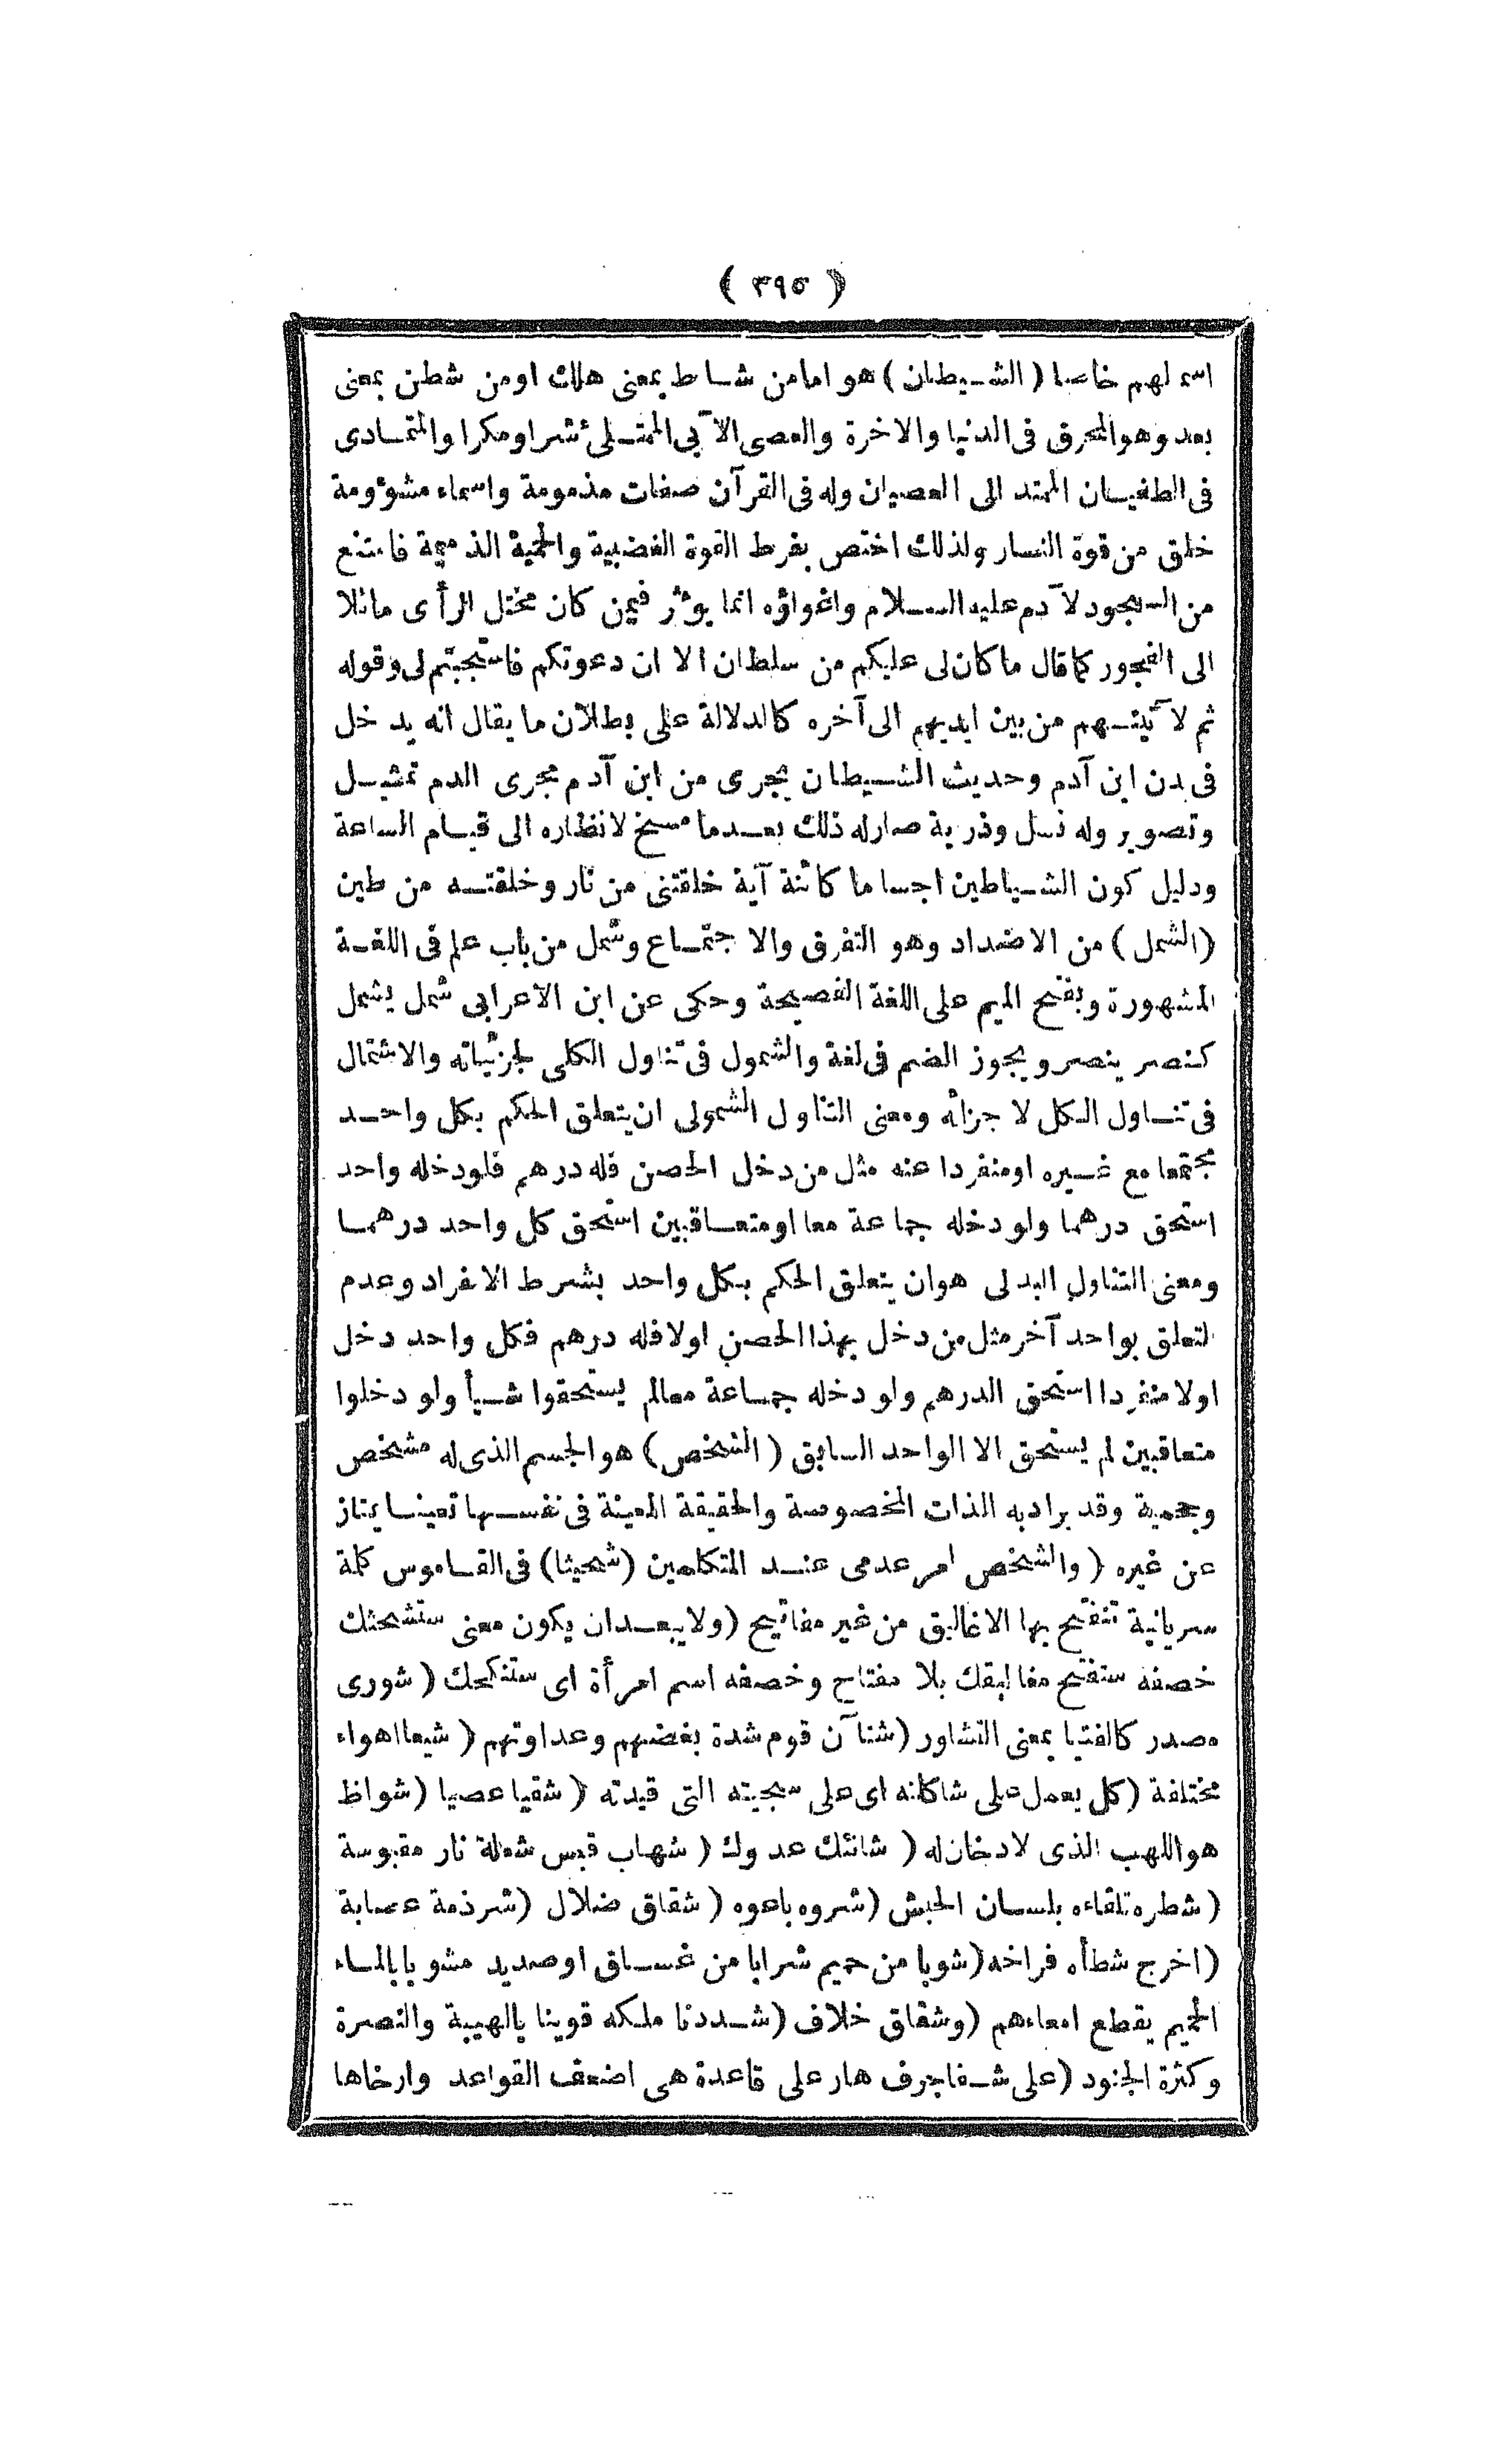 ( ٣٩٥ )
اسم لهم خاصا ( الشيطان ) هو اما من شاط بمعنى هلك او من شطن بمعنى
بعد وهو المحرق فى الدنيا والاخرة والعصى الآبى الممتلئ شرا ومكرا والمتمادى
فى الطغيان الممتد الى العصيان وله فى القرآن صفات مذمومة واسماء مشوؤمة
خلق من قوة النار ولذلك اختص بفرط القوة الغضبية والحمية الذميمة فامتنع
من السجود لآدم عليه السلام واغواؤه انما يوثر فيمن كان مختل الرأى مائلا
الى الفجور كما قال ما كان لى عليكم من سلطان الا ان دعوتكم فاستجبتم لى وقوله
ثم لآتينهم من بين ايديهم الى آخره كالدلالة على بطلان ما يقال انه يدخل
فى بدن ابن آدم وحديث الشيطان يجرى من ابن آدم مجرى الدم تمثيل
وتصوير وله نسل وذرية صار له ذلك بعدما مسخ لانظاره الى قيام الساعة
ودليل كون الشياطين اجساما كائنة آية خلقتنى من نار وخلقته من طين
( الشمل ) من الاضداد وهو التفرق والاجتماع وشمل من باب علم فى اللغة
المشهورة وبفتح الميم على اللغة الفصيحة وحكى عن ابن الاعرابى شمل يشمل
كنصر ينصر ويجوز الضم فى لغة والشمول فى تناول الكلى لجزئياته والاشتمال
فى تناول الكل لاجزائه ومعنى التناول الشمولى ان يتعلق الحكم بكل واحد
مجتمعا مع غيره او منفردا عنه مثل من دخل الحصن فله درهم فلو دخله واحد
استحق درهما ولو دخله جماعة معا او متعاقبين استحق كل واحد درهما
ومعنى التناول البدلى هو ان يتعلق الحكم بكل واحد بشرط الانفراد وعدم
التعلق بواحد آخر مثل من دخل بهذا الحصن اولا فله درهم فكل واحد دخل
اولا منفردا استحق الدرهم ولو دخله جماعة معا لم يستحقوا شيأ ولو دخلوا
متعاقبين لم يستحق الا الواحد السابق ( الشخص ) هو الجسم الذى له مشخص
وحجمية وقد يراد به الذات المخصوصة والحقيقة المعينة فى نفسها تعينا يمتاز
عن غيره ( والشخص امر عدمى عند المتكلمين ( شحيثا ) فى القاموس كلمة
سريانية تنفتح بها الاغاليق من غير مفاتيح ( ولا يبعد ان يكون معنى ستشحثك
خصفه ستفتح مغاليقك بلا مفتاح وخصفه اسم امرأة اى ستنكحك ( شورى
مصدر كالفتيا بمعنى التشاور ( شنآن قوم شدة بغضهم وعداوتهم ( شيعا اهواء
مختلفة ( كل يعمل على شاكلته اى على سجيته التى قيدته ( شقيا عصيا ( شواظ
هو اللهب الذى لا دخان له ( شانئك عدوك ( شهاب قبس شعلة نار مقبوسة
( شطره تلقاءه بلسان الحبش ( شروه باعوه ( شقاق ضلال ( شرذمة عصابة
( اخرج شطأه فراخه ( شوبا من حميم شرابا من غساق او صديد مشوبا بالماء
الحميم يقطع امعاءهم ( وشقاق خلاف ( شددنا ملكه قوينا بالهيبة والنصرة
وكثرة الجنود ( على شفا جرف هار على قاعدة هى اضعف القواعد وارخاها